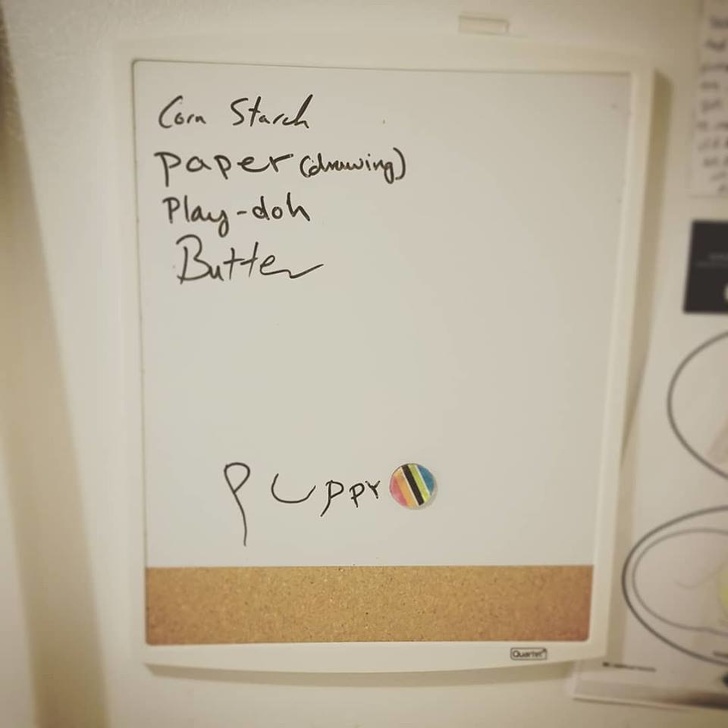 Corn Starch
paper (drawing)
Play-doh
Butter
PUPPY
Quartet